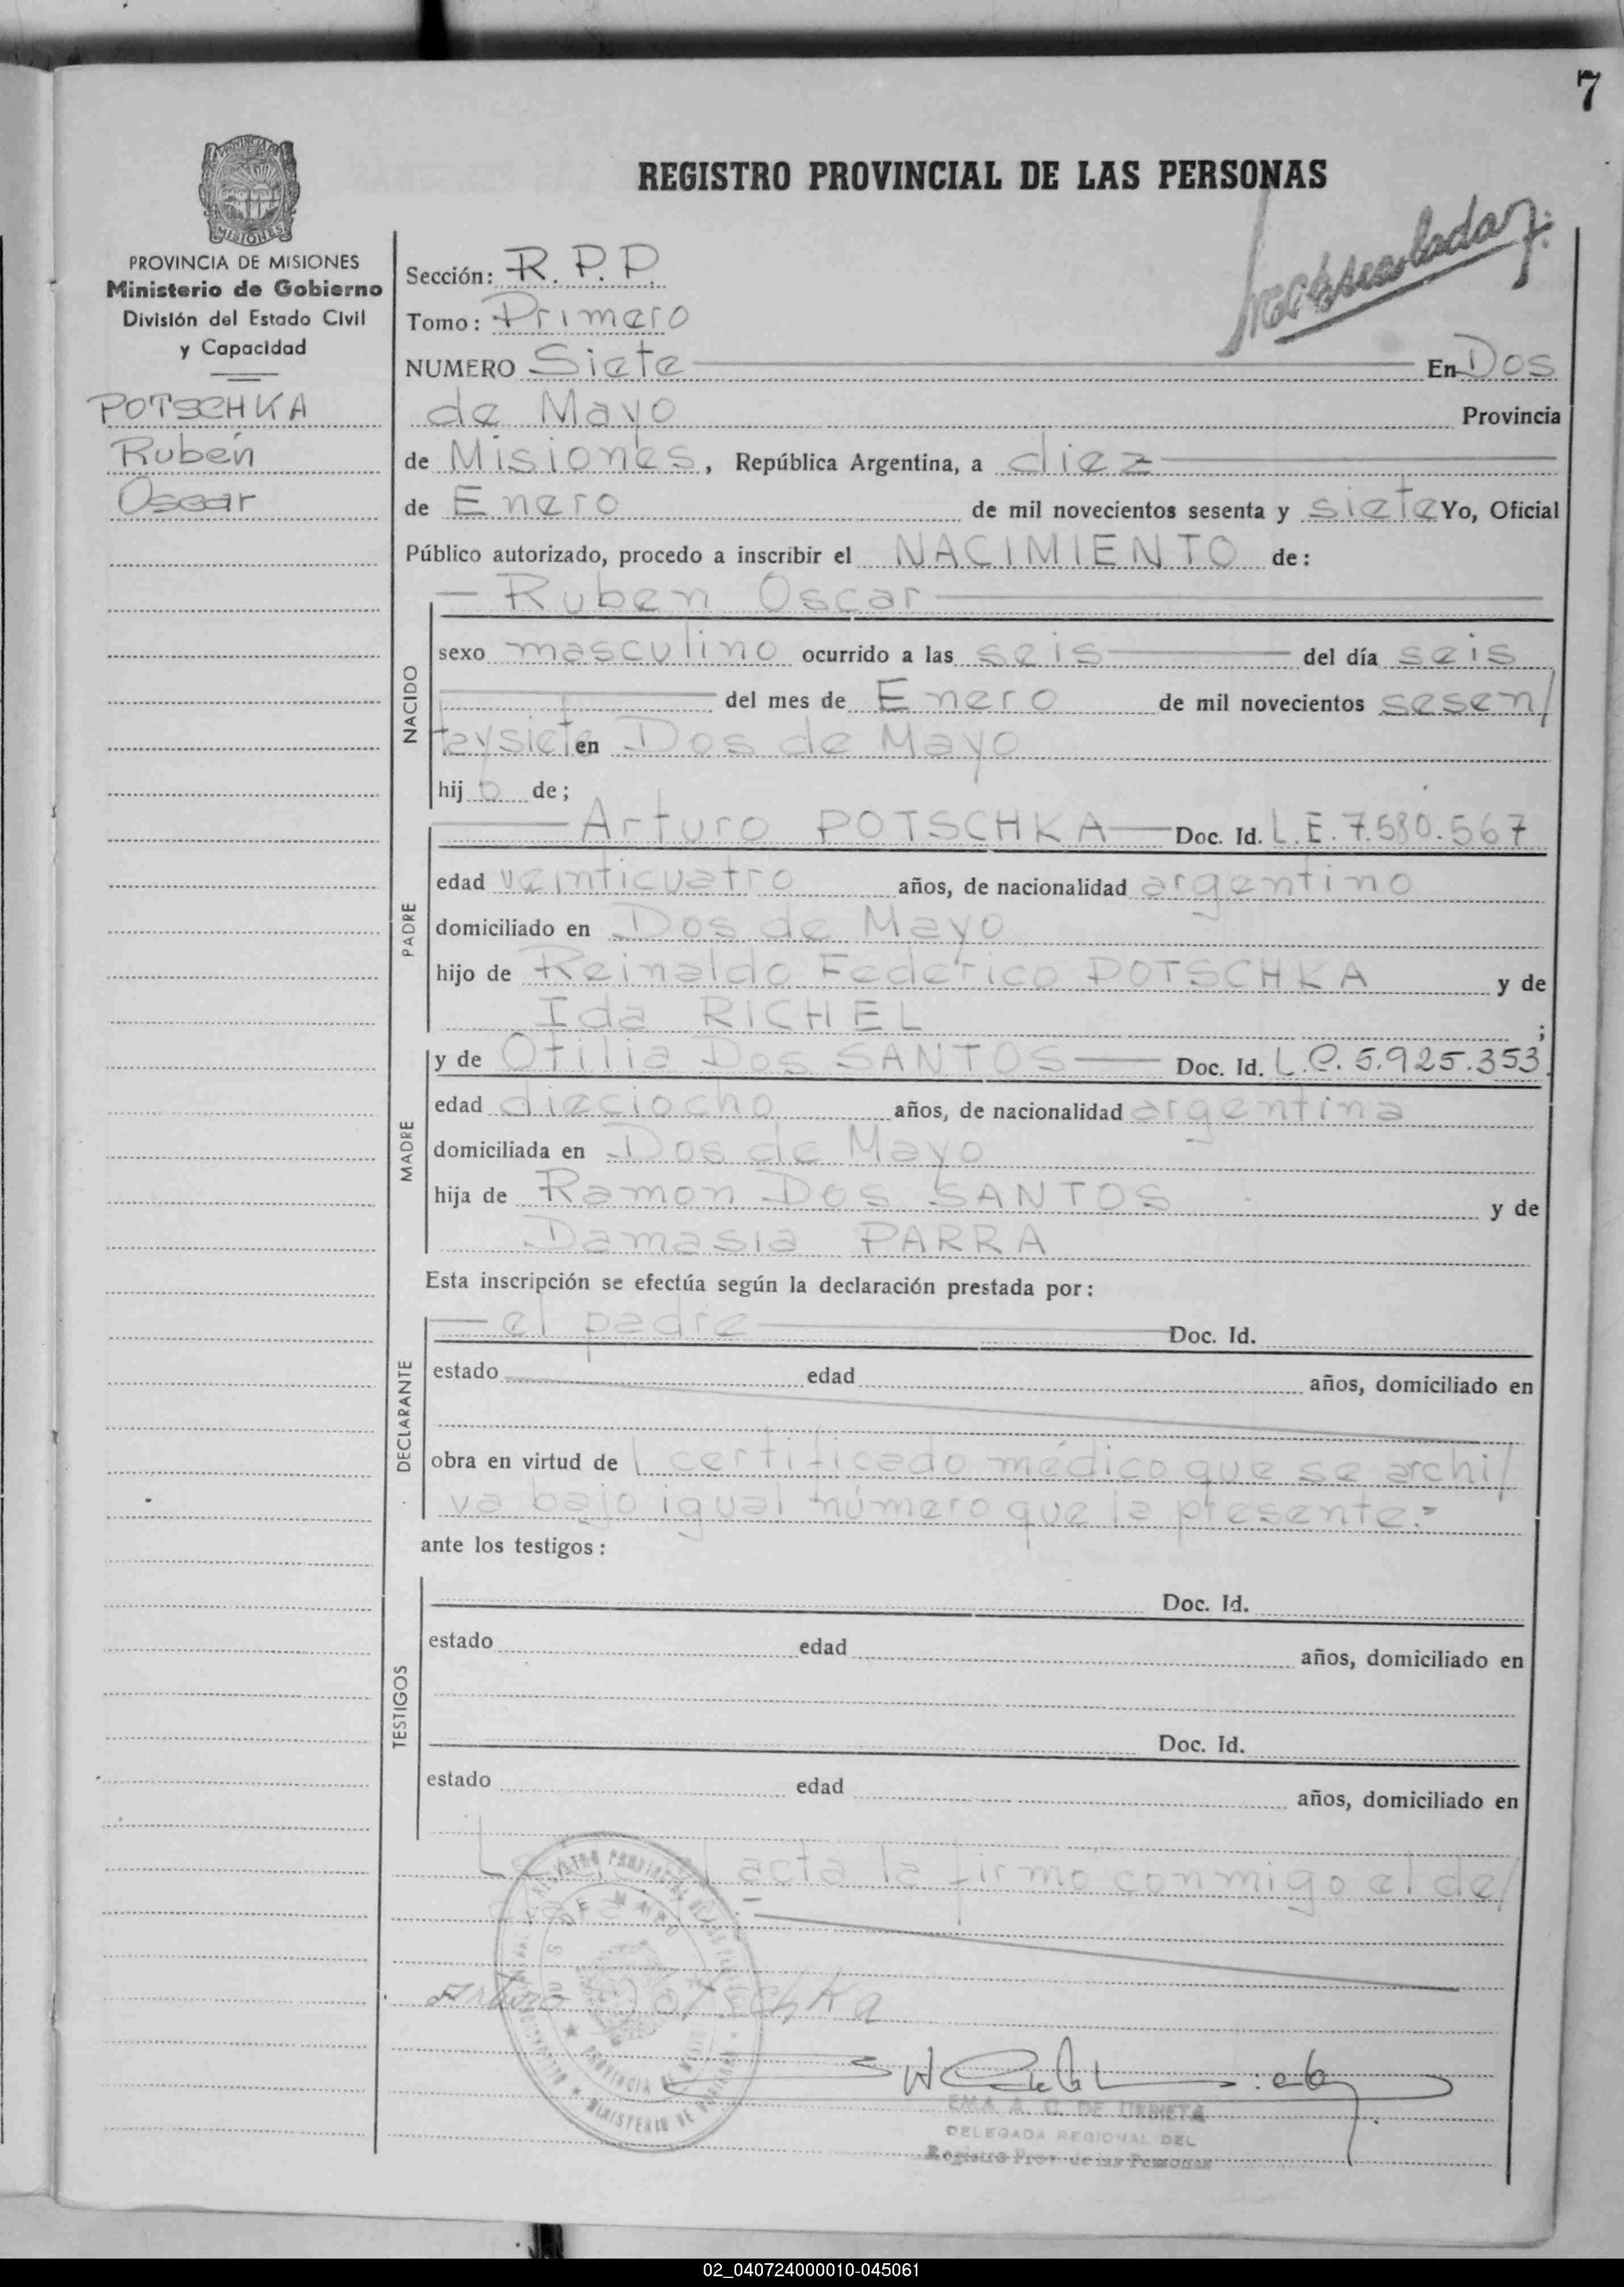 7
REGISTRO PROVINCIAL DE LAS PERSONAS
PROVINCIA DE MISIONES
Ministerio de Gobierno
División del Estado Civil
y Capacidad
POTSCHKA
Rubén
Oscar
Sección: R.P.P.
Tomo: Primero
NUMERO Siete En Dos
de Mayo Provincia
de Misiones, República Argentina, a diez
de Enero de mil novecientos sesenta y siete Yo, Oficial
Público autorizado, procedo a inscribir el NACIMIENTO de:
Ruben Oscar
NACIDO
sexo masculino ocurrido a las seis del día seis
del mes de Enero de mil novecientos sesen/
taysiete en Dos de Mayo
hijo de;
PADRE
Arturo POTSCHKA Doc. Id. L.E. 7.580.567
edad veinticuatro años, de nacionalidad argentino
domiciliado en Dos de Mayo
hijo de Reinaldo Federico POTSCHKA y de
Ida RICHEL ;
MADRE
y de Otilia Dos SANTOS Doc. Id. L.C. 5.925.353
edad dieciocho años, de nacionalidad argentina
domiciliada en Dos de Mayo
hija de Ramon Dos SANTOS y de
Damasia PARRA
Esta inscripción se efectúa según la declaración prestada por:
DECLARANTE
el padre Doc. Id.
estado edad años, domiciliado en
obra en virtud de l certificado médico que se archi/
va bajo igual número que la presente.=
ante los testigos:
TESTIGOS
Doc. Id.
estado edad años, domiciliado en
Doc. Id.
estado edad años, domiciliado en
acta la firmó conmigo el de/
Arturo Potschka
REGISTRO PROVINCIAL DE LAS
DOS DE MAYO
PROVINCIA DE
MINISTERIO DE GOBIERNO
EMA A. C. DE URRIETA
DELEGADA REGIONAL DEL
Registro Prov. de las Personas
02_040724000010-045061